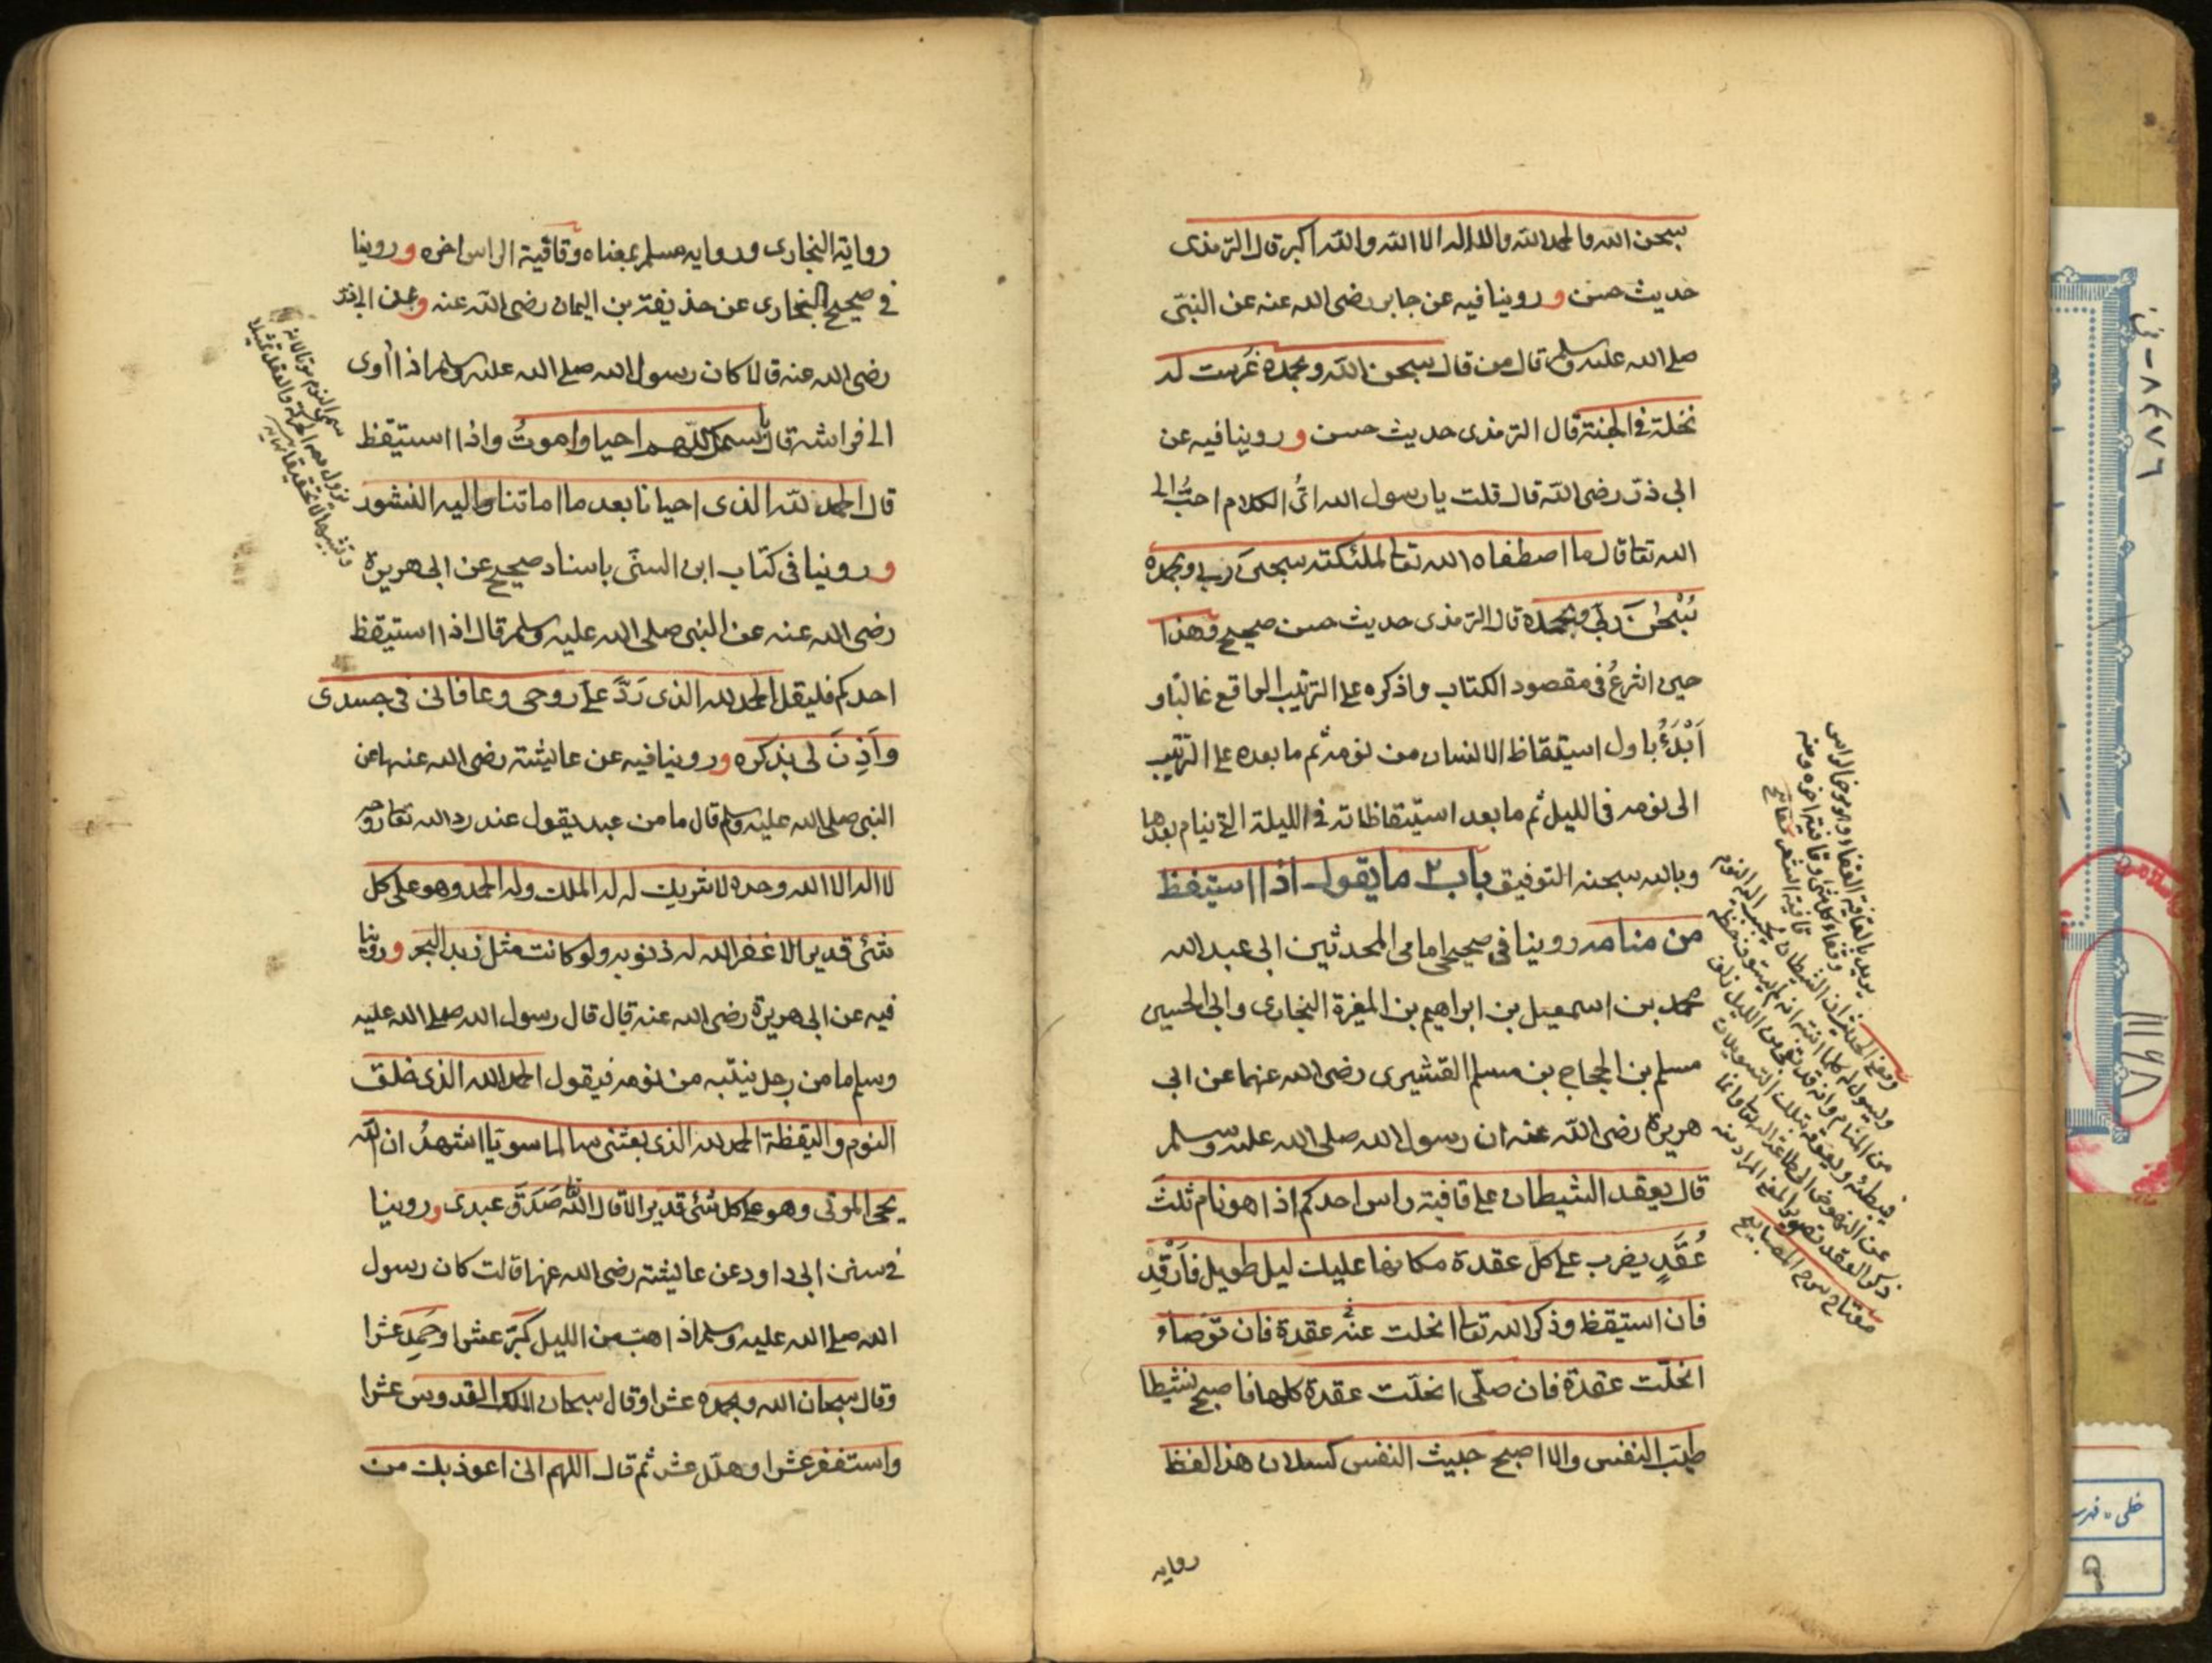 سبحن الله والحمد لله ولا اله الا الله والله اكبر قال الترمذى
حديث حسن وروينا فيه عن جابر رضى الله عنه عن النبى
صلى الله عليه وسلم قال من قال سبحن الله وبحمده غُرست له
نخلة فى الجنة قال الترمذى حديث حسن وروينا فيه عن
ابى ذر رضى الله قال قلت يا رسول الله اىّ الكلام احبُّ الى
الله تعا قال ما اصطفاه الله تعا لملئكته سبحن ربى وبحمده
سُبْحٰنَ ربى وبحمده قال الترمذى حديث حسن صحيح وهذا
حين اشرعُ فى مقصود الكتاب واذكره على الترتيب الواقع غالبًا و
اَبْدَءُ باول استيقاظ الانسان من نومه ثم ما بعده على الترتيب
الى نومه فى الليل ثم ما بعد استيقاظاته فى الليلة التى ينام بعدها
وبالله سبحنه التوفيق باب ٢ ما يقول اذا استيقظ
من منامه روينا فى صحيحى امامى المحدثين ابى عبد الله
محمد بن اسمعيل بن ابراهيم بن المغيرة البخارى وابى الحسين
مسلم بن الحجاج بن مسلم القشيرى رضى الله عنهما عن ابى
هريرة رضى الله عنه ان رسول الله صلى الله عليه وسلم
قال يعقد الشيطان على قافية راس احدكم اذا هو نام ثلثَ
عُقَدٍ يضرب على كلّ عقدة مكانها عليك ليل طويل فَارْقُدْ
فان استيقظ وذكر الله تعالى انحلت عنه عقدة فان توضأ و
انحلّت عقدة فان صلّى انحلّت عقدة كلها فاصبح نشيطا
طيّب النفس والا اصبح خبيث النفس كسلان هذا لفظ
روايه
يريد بالقافية القفا وهو مؤخر الراس
وقفاء كل شئ وقافيته اخره ومنه
قافية الشعر
ومعنى الحديث ان الشيطان يحبب اليه النوم
مفتاح شرح المصابيح
رواية البخارى ورواية مسلم بمعناه وقافية الراس اخره وروينا
فى صحيح البخارى عن حذيفة بن اليمان رضى الله عنه وعن ابى ذر
رضى الله عنه قالا كان رسول الله صلى الله عليه وسلم اذا أوى
الى فراشه قال باسمك اللّهم احيا واموتُ واذا استيقظ
قال الحمد لله الذى احيانا بعد ما اماتنا واليه النشور
وروينا فى كتاب ابن السنّى باسناد صحيح عن ابى هريرة
رضى الله عنه عن النبى صلى الله عليه وسلم قال اذا استيقظ
احدكم فليقل الحمد لله الذى رَدَّ علىَّ روحى وعافانى فى جسدى
واَذِنَ لى بذكره وروينا فيه عن عائشة رضى الله عنها عن
النبى صلى الله عليه وسلم قال ما من عبد يقول عند رد الله تعا روحه
لا اله الا الله وحده لا شريك له له الملك وله الحمد وهو على كل
شئ قدير الا غفر الله له ذنوبه ولو كانت مثل زبد البحر وروينا
فيه عن ابى هريرة رضى الله عنه قال قال رسول الله صلى الله عليه
وسلم ما من رجل ينتبه من نومه فيقول الحمد لله الذى خلق
النوم واليقظة الحمد لله الذى بعثنى سالما سويّا اشهدُ ان الله
يحى الموتى وهو على كل شئ قدير الا قال الله تعا صَدَقَ عبدى وروينا
فى سنن ابى داود عن عائشة رضى الله عنها قالت كان رسول
الله صلى الله عليه وسلم اذا هبّ من الليل كبّر عشرا وحَمِد عشرا
وقال سبحان الله وبحمده عشرا وقال سبحان الملك القدوس عشرا
واستغفر عشرا وهلّل عشر ثم قال اللهم انى اعوذ بك من